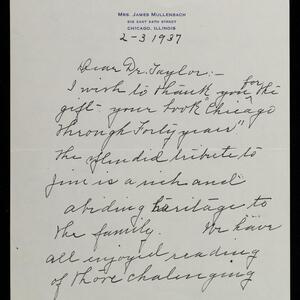 MRS. JAMES MULLENBACH
CHICAGO, ILLINOIS
2-3 1937
Dear Dr. Taylor:-
I wish to thank you for the
gift - your book "Chicago
through Forty years"
The splendid tribute to
Jim is a rich and
abiding haritage to
the family. We have
all enjoyed reading
of those chalenging